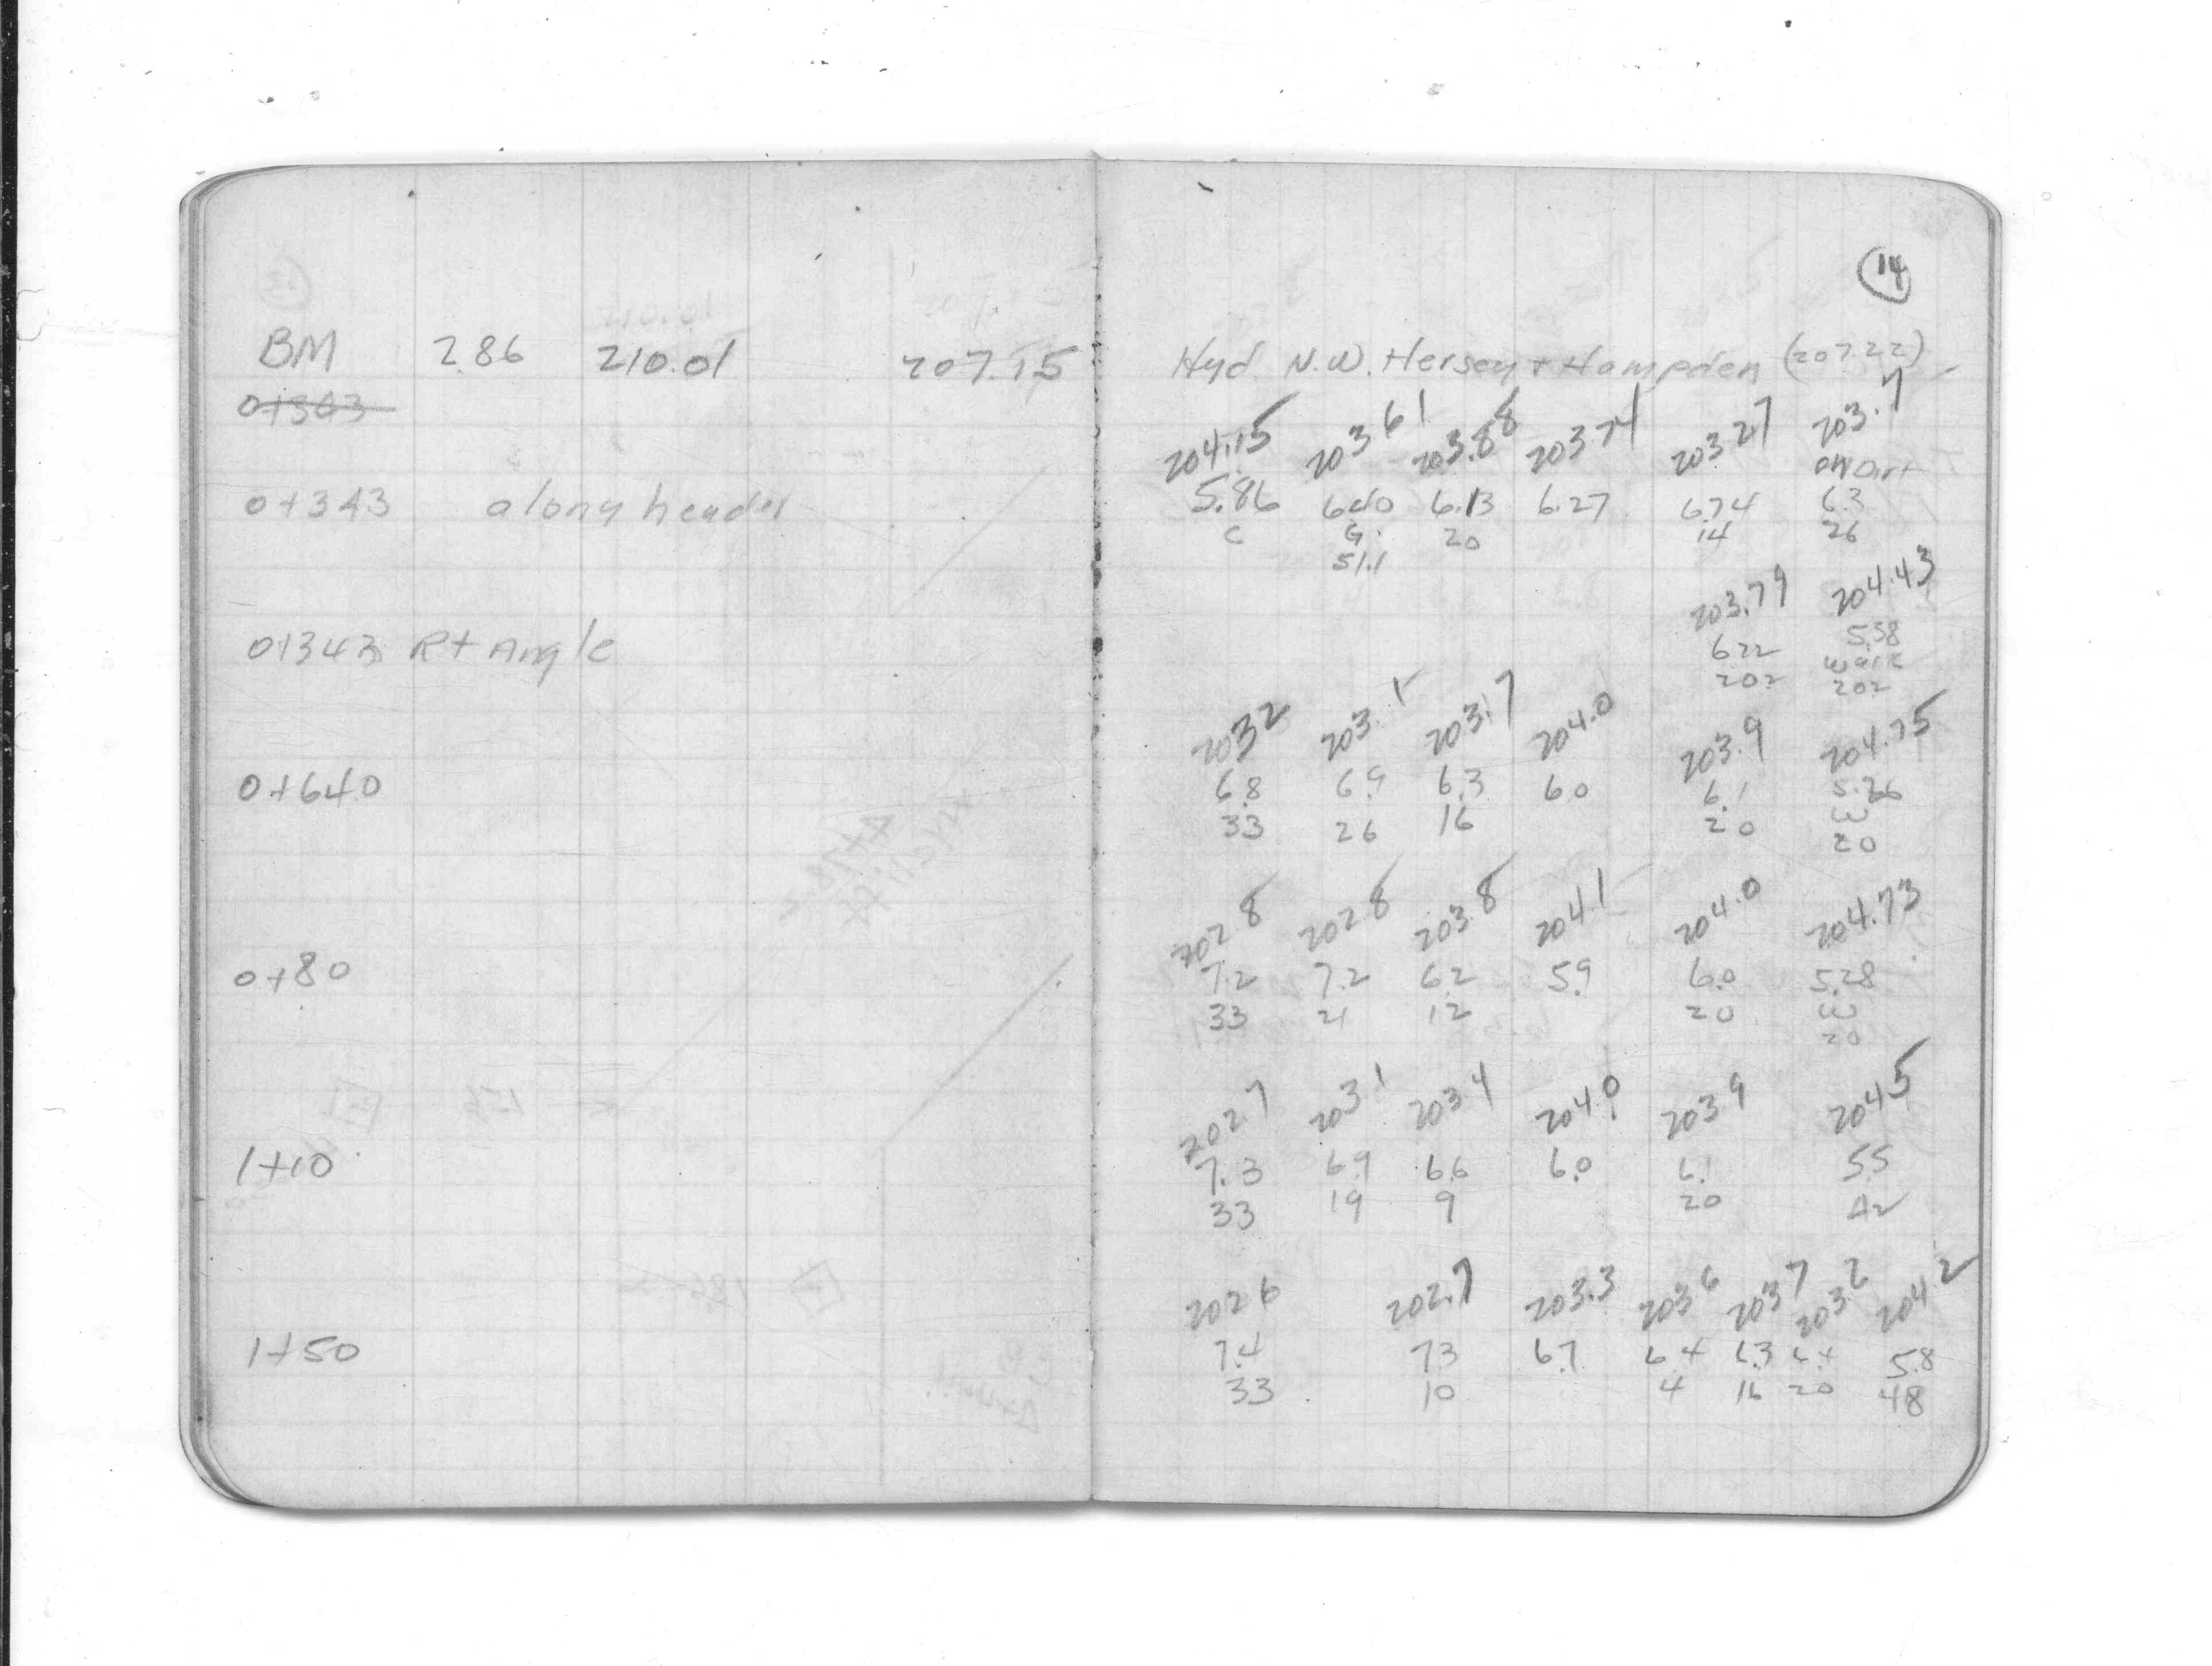 14
BM 2.86 210.01 207.15 Hyd. N.W. Hersey + Hampden (207.22)
0+343
204.15 203 61 203.88 203 74 203 27 203.7
0+343 along header 5.86 6.40 6.13 6.27 6.74 6.3
C G 20 14 26
51.1
203.79 204.43
0+343 Rt Angle 6.22 5.58
walk
20.2 20.2
203 2 203.1 203.7 204.0 203.9 204.75
0+64.0 6.8 6.9 6.3 6.0 6.1 5.26
33 26 16 20 W
20
202 8 202 8 203 8 204 1 204.0 204.73
0+80 7.2 7.2 6.2 5.9 6.0 5.28
33 21 12 20 W
20
202.7 203 1 203 4 204.0 203 9 204 5
1+10 7.3 6.9 6.6 6.0 6.1 5.5
33 19 9 20
202 6 202.7 203.3 203 6 203 7 203.6 204 2
1+50 7.4 7.3 6.7 6.4 6.3 6.4 5.8
33 10 4 16 20 48